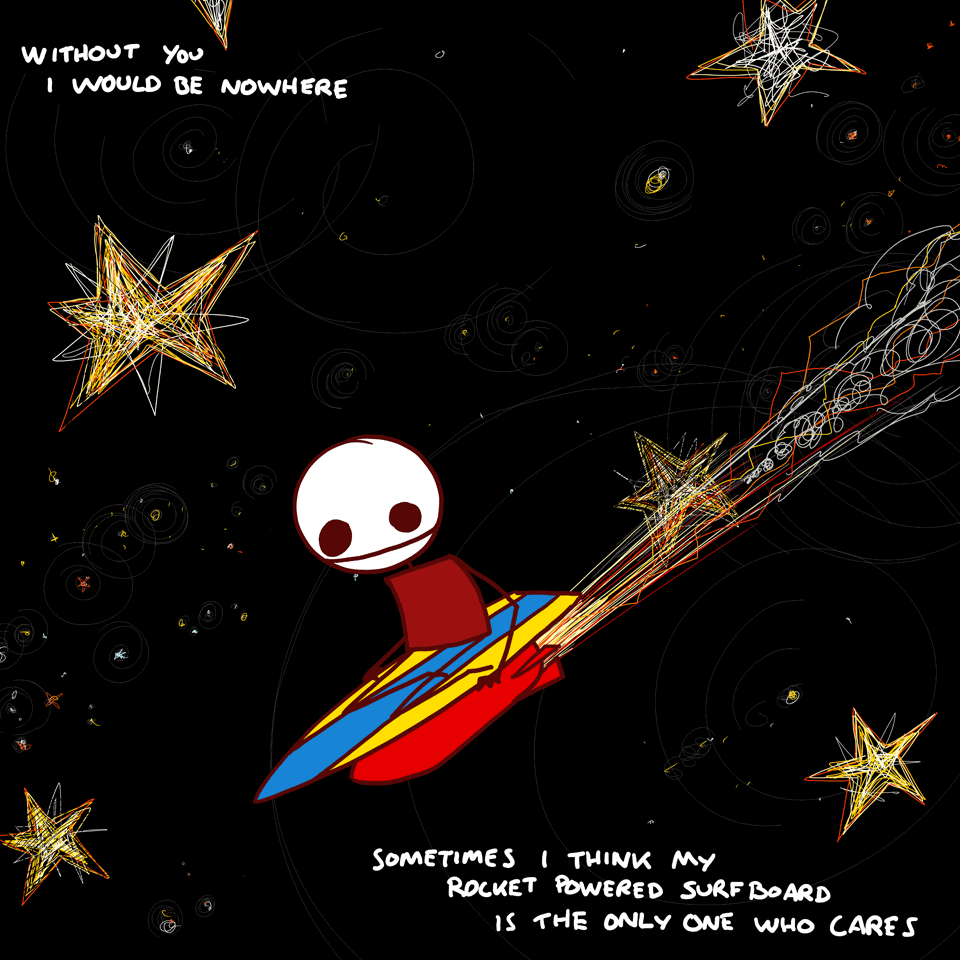 WITHOUT YOU
I WOULD BE NOWHERE
SOMETIMES I THINK MY
ROCKET POWERED SURFBOARD
IS THE ONLY ONE WHO CARES